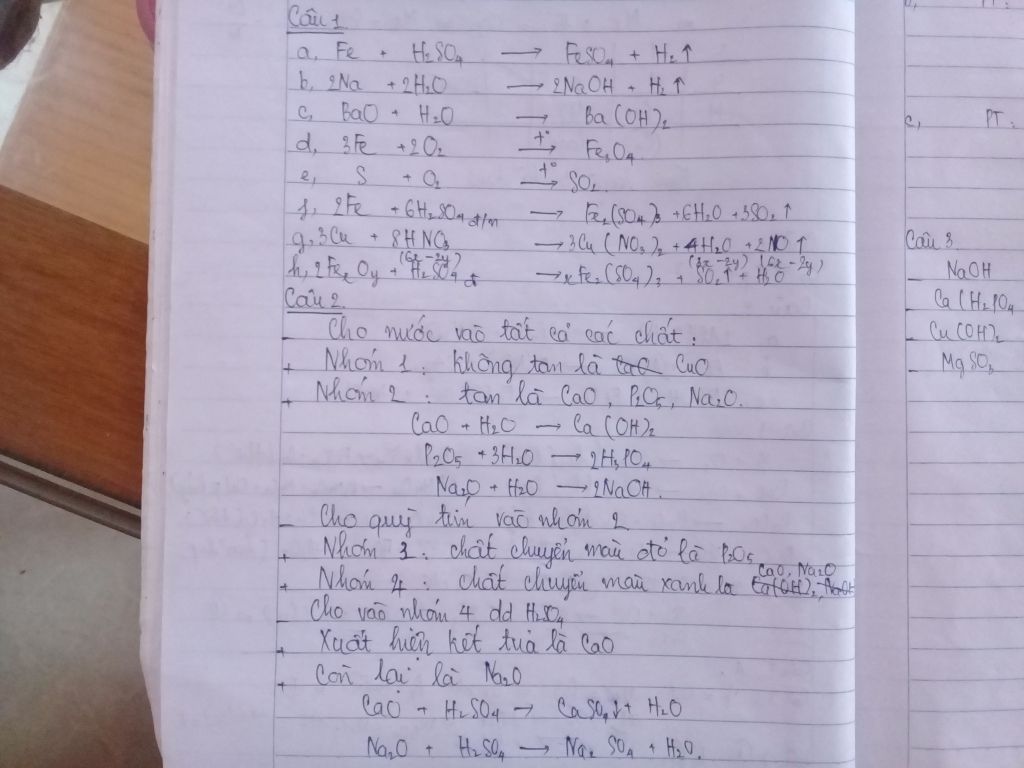 Câu 1
a, Fe + H₂SO₄ → FeSO₄ + H₂↑
b, 2Na + 2H₂O → 2NaOH + H₂↑
c, BaO + H₂O → Ba(OH)₂
d, 3Fe + 2O₂ →(t°) Fe₃O₄
e, S + O₂ →(t°) SO₂
f, 2Fe + 6H₂SO₄ đ/n → Fe₂(SO₄)₃ + 6H₂O + 3SO₂↑
g, 3Cu + 8HNO₃ → 3Cu(NO₃)₂ + 4H₂O + 2NO↑
h, 2FeₓOᵧ + (6x-2y) H₂SO₄ đ → xFe₂(SO₄)₃ + (3x-2y) SO₂↑ + (6x-2y) H₂O
Câu 2
- Cho nước vào tất cả các chất:
+ Nhóm 1: không tan là CuO
+ Nhóm 2: tan là CaO, P₂O₅, Na₂O.
CaO + H₂O → Ca(OH)₂
P₂O₅ + 3H₂O → 2H₃PO₄
Na₂O + H₂O → 2NaOH.
- Cho quỳ tím vào nhóm 2
+ Nhóm 3: chất chuyển màu đỏ là P₂O₅
+ Nhóm 4: chất chuyển màu xanh là CaO, Na₂O
- Cho vào nhóm 4 dd H₂SO₄
+ Xuất hiện kết tủa là CaO
+ Còn lại là Na₂O
CaO + H₂SO₄ → CaSO₄↓ + H₂O
Na₂O + H₂SO₄ → Na₂SO₄ + H₂O.
PT:
c, PT:
Câu 3
- NaOH
- Ca(H₂PO₄
- Cu(OH)₂